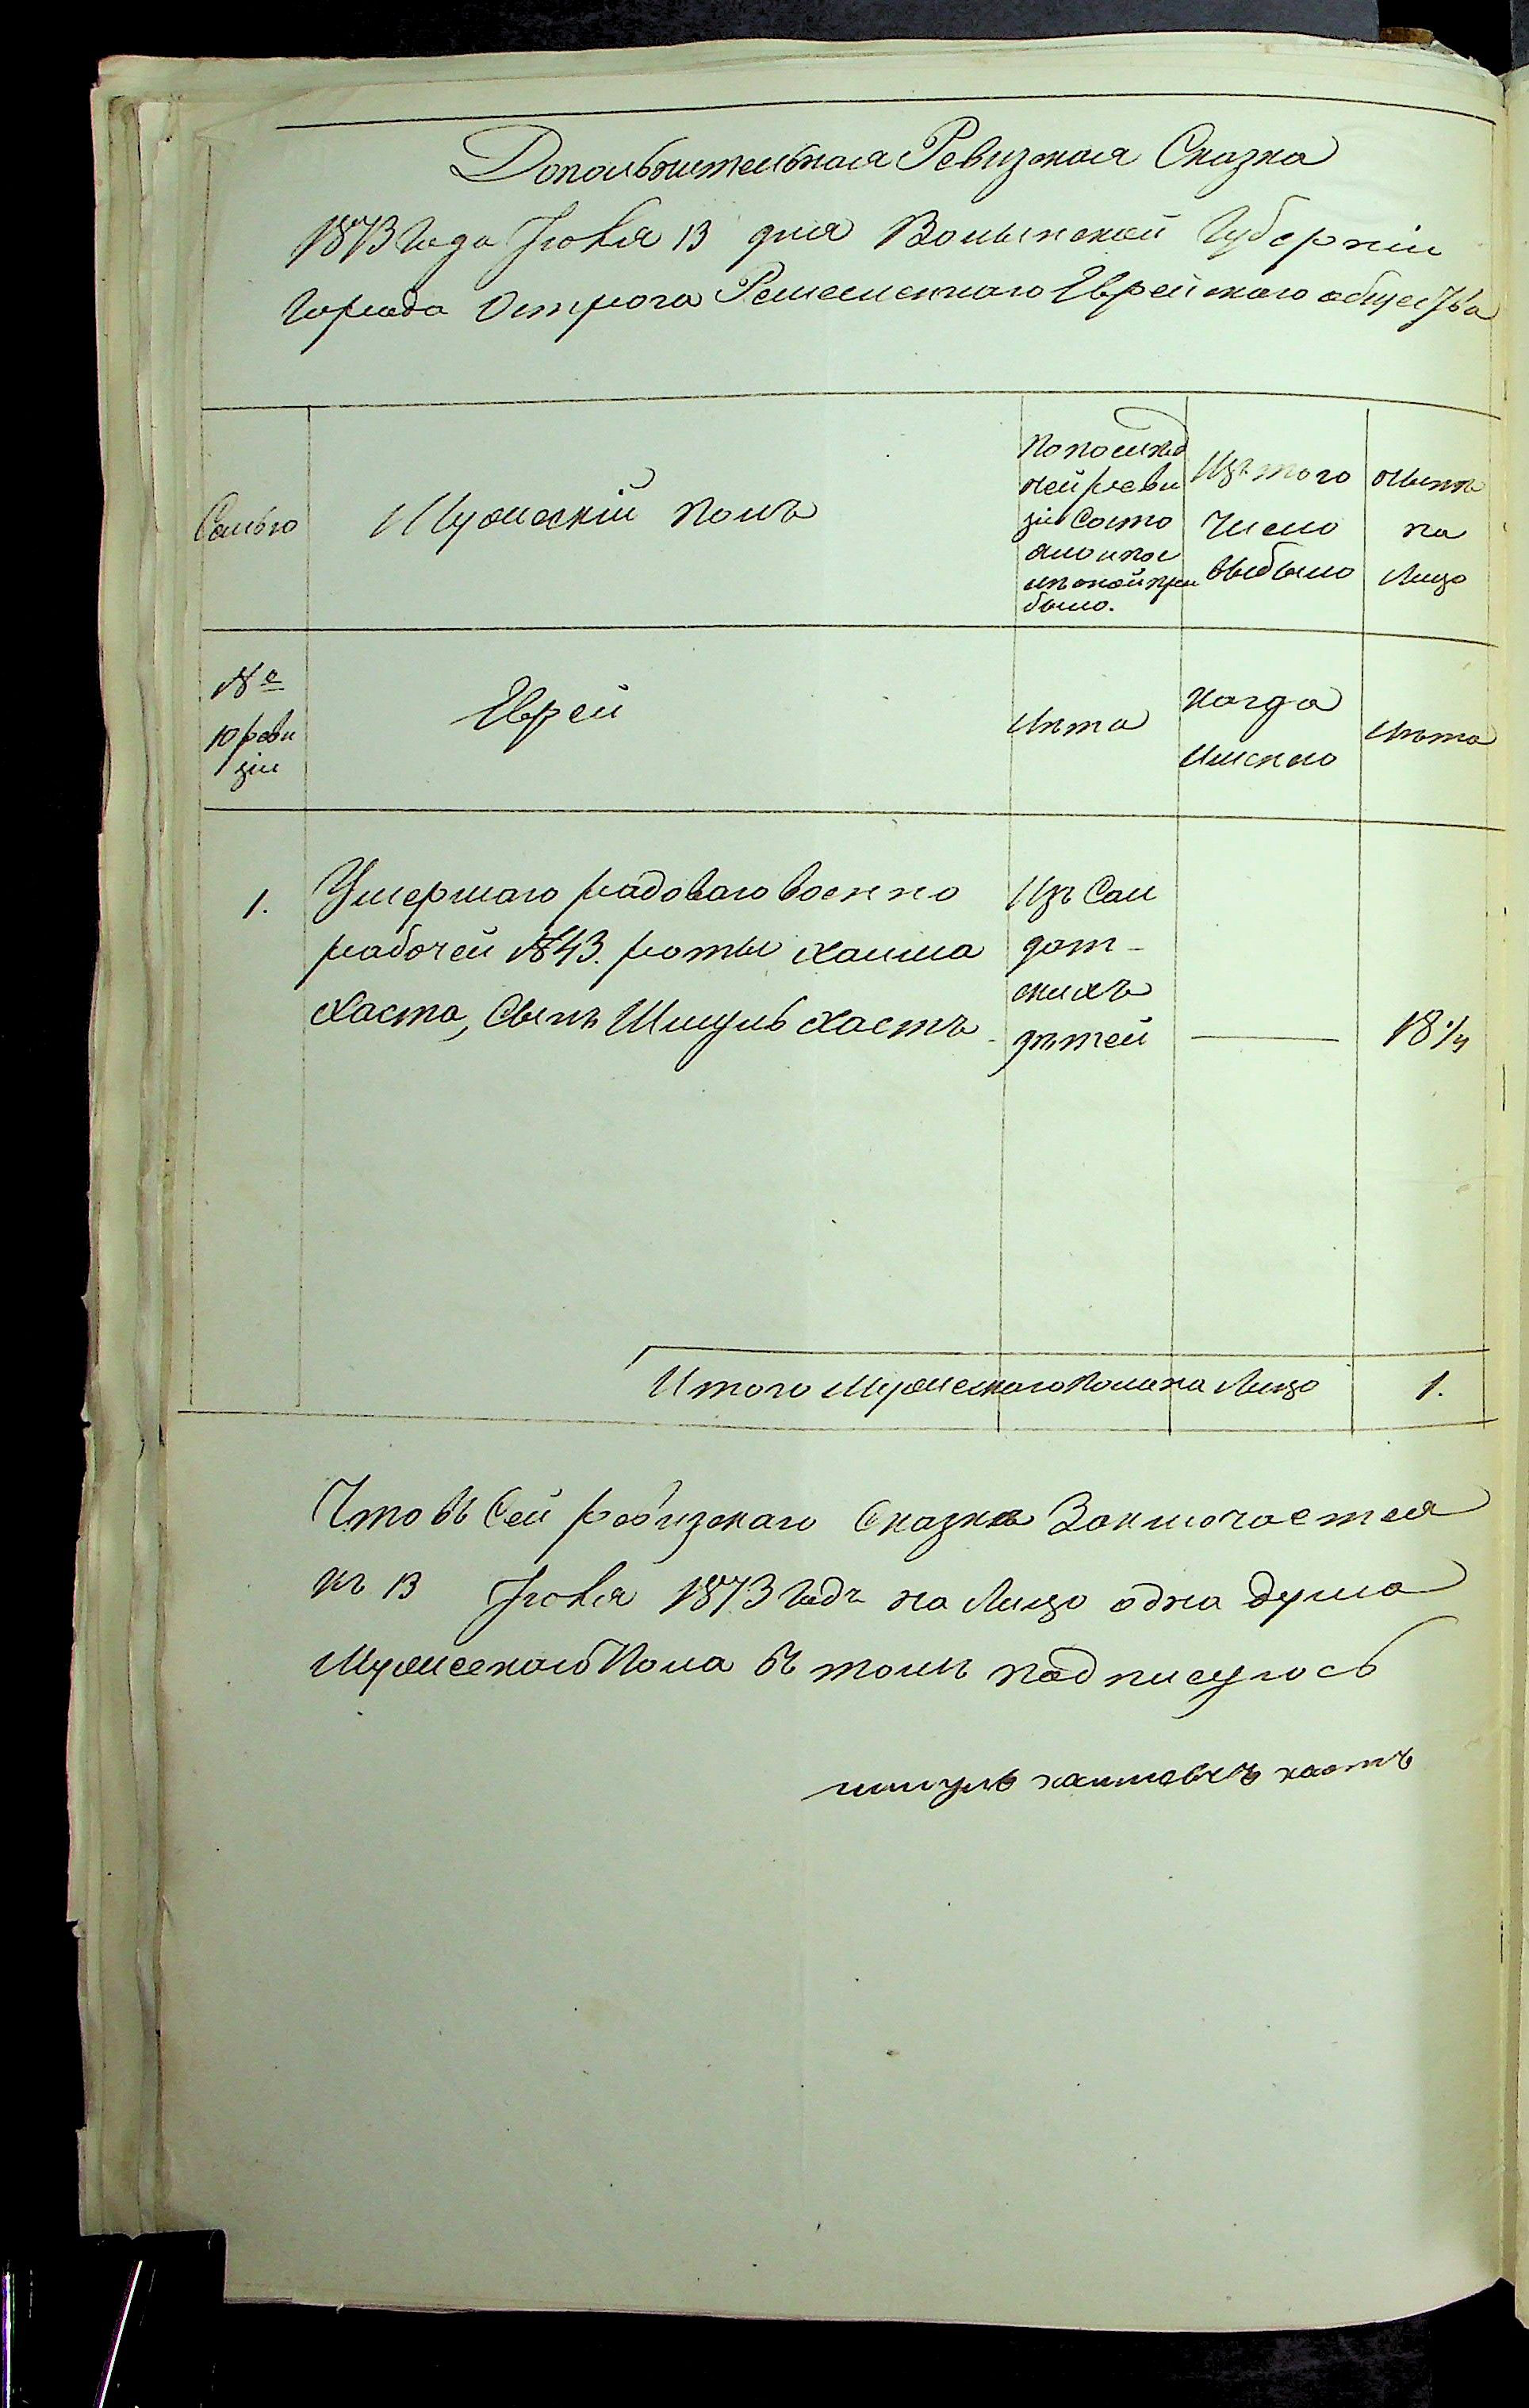 Дополнительная Ревизкая Сказка
1873 Года Іюня 13 дня Волынской Губерніи
Города Острога Ремесленнаго Еврейскаго общества
Семью
Мужескій полъ
По послѣд
ней реви
зіи состо
яло и пос
лѣ оной при
было.
Изъ того
Число
выбыло
Нынѣ
на
Лицо
№
10 реви
зіи
Еврей
Лѣта
Когда
Именно
Лѣта
1.
Умершаго рядоваго военно
рабочей №43. роты Хаима
Хаста, Сынъ Шмуль Хастъ
Изъ Сол
дат-
скихъ
дѣтей
18¼
Итого Мужескаго Пола на Лицо
1.
Что въ Сей ревизскаго Сказке Заключается
къ 13 Іюня 1873 Годъ на Лицо одна душа
Мужескаго Пола въ томъ подписуюсь
шмуль хаимовичъ хастъ